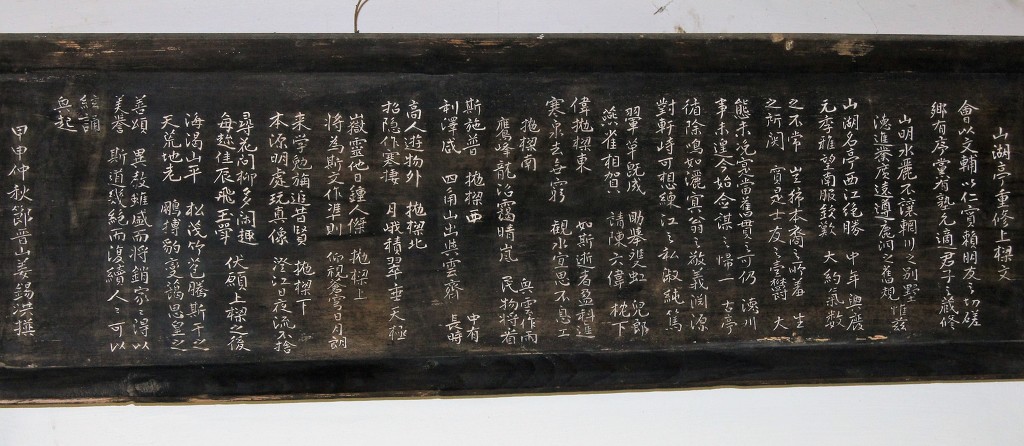 山湖亭重修上樑文
會以文輔以仁實賴朋友之切磋
鄉有序堂有塾允適君子之藏修
山明水麗不讓輞川之別墅惟玆
德進業廣遠遵鹿洞之舊規
山湖名亭西江絶勝 中年
元李雅望南服 大約氣數
之不常 生
之所関 實是士友之 大
態未况 舊貫之可仍 川
事未遑今始合謀之帰一 古亭
循除鳴如灑寘翁之敬義渕源
對軒峙可想練江之私淑純篤
翚革既成 助舉 兒郎
燕雀相賀 請陳六偉 枕下
偉抛樑東 如斯逝者盈科進
寒泉去 窮 觀水宜思不息工
抛樑南 興雲作雨
鷹峰龍 靄晴嵐 民物將看
斯施普 抛樑西 中有
利澤咸 四甪山出與雲齊 長時
高人遊物外 抛樑北
招隐作寒棲 月峩積翠 天極
嶽靈他日鍾人傑 抛樑上
將爲斯文作準則 仰視蒼蒼日月朗
来学勉 追昔賢 抛樑下
本源明處玩真像 澄江日夜流不捨
尋花問柳多閒趣
每趂佳辰飛玉斝 伏願上樑之後
海渴山平 松茂竹苞騰斯干之
天荒地老 鵬摶豹變 思皇之
善頌 異教雖盛而將銷家之得以
美譽 斯道幾絶而復續人之可以
絃誦
興起
甲申仲秋節晋山姜錫洪撰